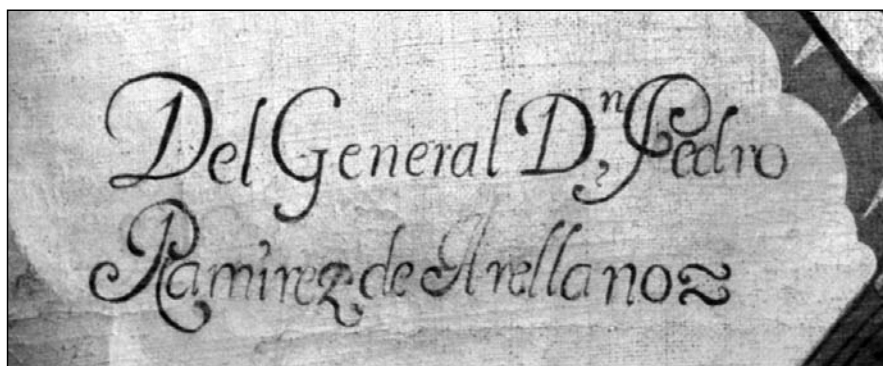 Del General Dⁿ, Pedro
Ramirez de Arellano